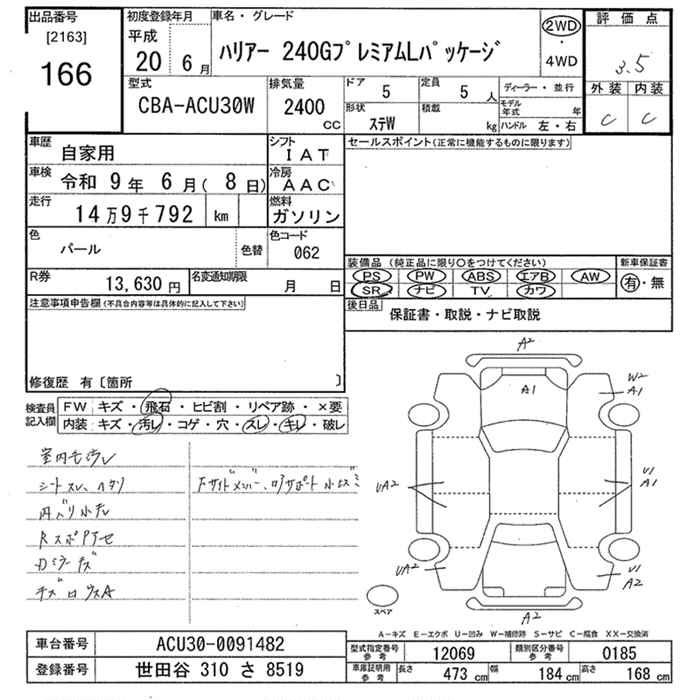 出品番号
[2163]
166
初度登録年月
平成
20 6月
車名・グレード
ハリアー 240GプレミアムLパッケージ
2WD
・
4WD
評価点
3.5
外装 内装
C C
型式
CBA-ACU30W
排気量
2400
CC
ドア
5
定員
5人
形状
ステW
積載
kg
ディーラー・並行
モデル年式 年
ハンドル 左・右
車歴
自家用
シフト
IAT
車検
令和 9年 6月( 8日)
冷房
AAC
走行
14万9千792 km
燃料
ガソリン
色
パール
色替
色コード
062
R券
13,630円
名変通知期限
月 日
セールスポイント(正常に機能するものに限ります)
装備品 (純正品に限り○をつけてください)
PS PW ABS エアB AW
SR ナビ TV カワ
新車保証書
有・無
後日品
保証書・取説・ナビ取説
注意事項申告欄(不具合内容等は具体的に記入して下さい)
修復歴 有〔箇所 〕
検査員記入欄
FW キズ・飛石・ヒビ割・リペア跡・×要
内装 キズ・汚レ・コゲ・穴・スレ・キレ・破レ
シートスレ、ヘタリ
A2
A1
W2
A1
UA2
U1
A1
UA2
U1
A2
A2
スペア
A-キズ E-エクボ U-凹み W-補修跡 S-サビ C-腐食 XX-交換済
車台番号
ACU30-0091482
登録番号
世田谷 310 さ 8519
型式指定番号
参考
12069
類別区分番号
参考
0185
車庫証明用
参考
長さ 473 cm 幅 184 cm 高さ 168 cm